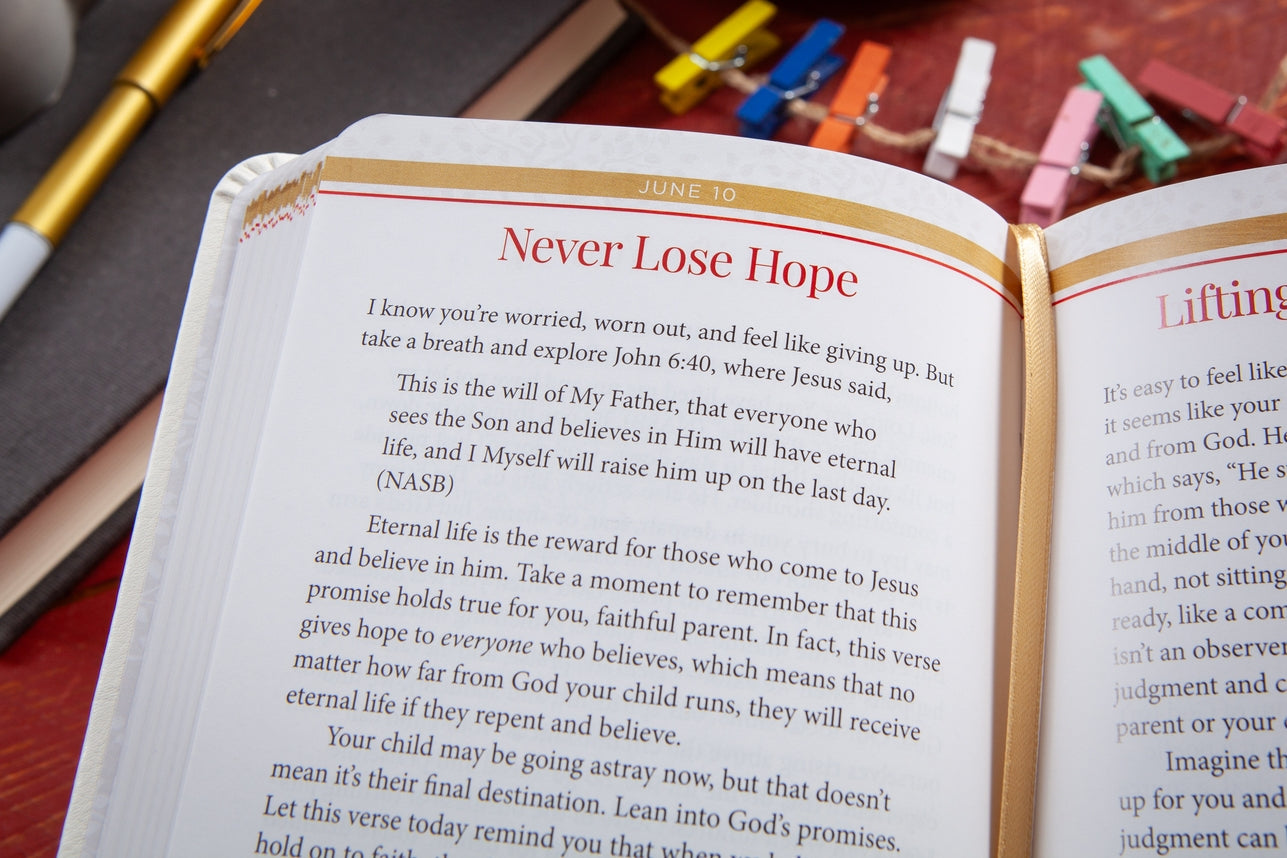 JUNE 10
Never Lose Hope
I know you're worried, worn out, and feel like giving up. But
take a breath and explore John 6:40, where Jesus said,
This is the will of My Father, that everyone who
sees the Son and believes in Him will have eternal
life, and I Myself will raise him up on the last day.
(NASB)
Eternal life is the reward for those who come to Jesus
and believe in him. Take a moment to remember that this
promise holds true for you, faithful parent. In fact, this verse
gives hope to everyone who believes, which means that no
matter how far from God your child runs, they will receive
eternal life if they repent and believe.
Your child may be going astray now, but that doesn't
mean it's their final destination. Lean into God's promises.
Let this verse today remind you that when
hold on to
Lifting
It's easy to feel like
it seems like your
and from God.
which says, "He
him from those
the middle of
hand, not sitting
ready, like a
isn't an
judgment and
parent or your
Imagine
up for you and
judgment can